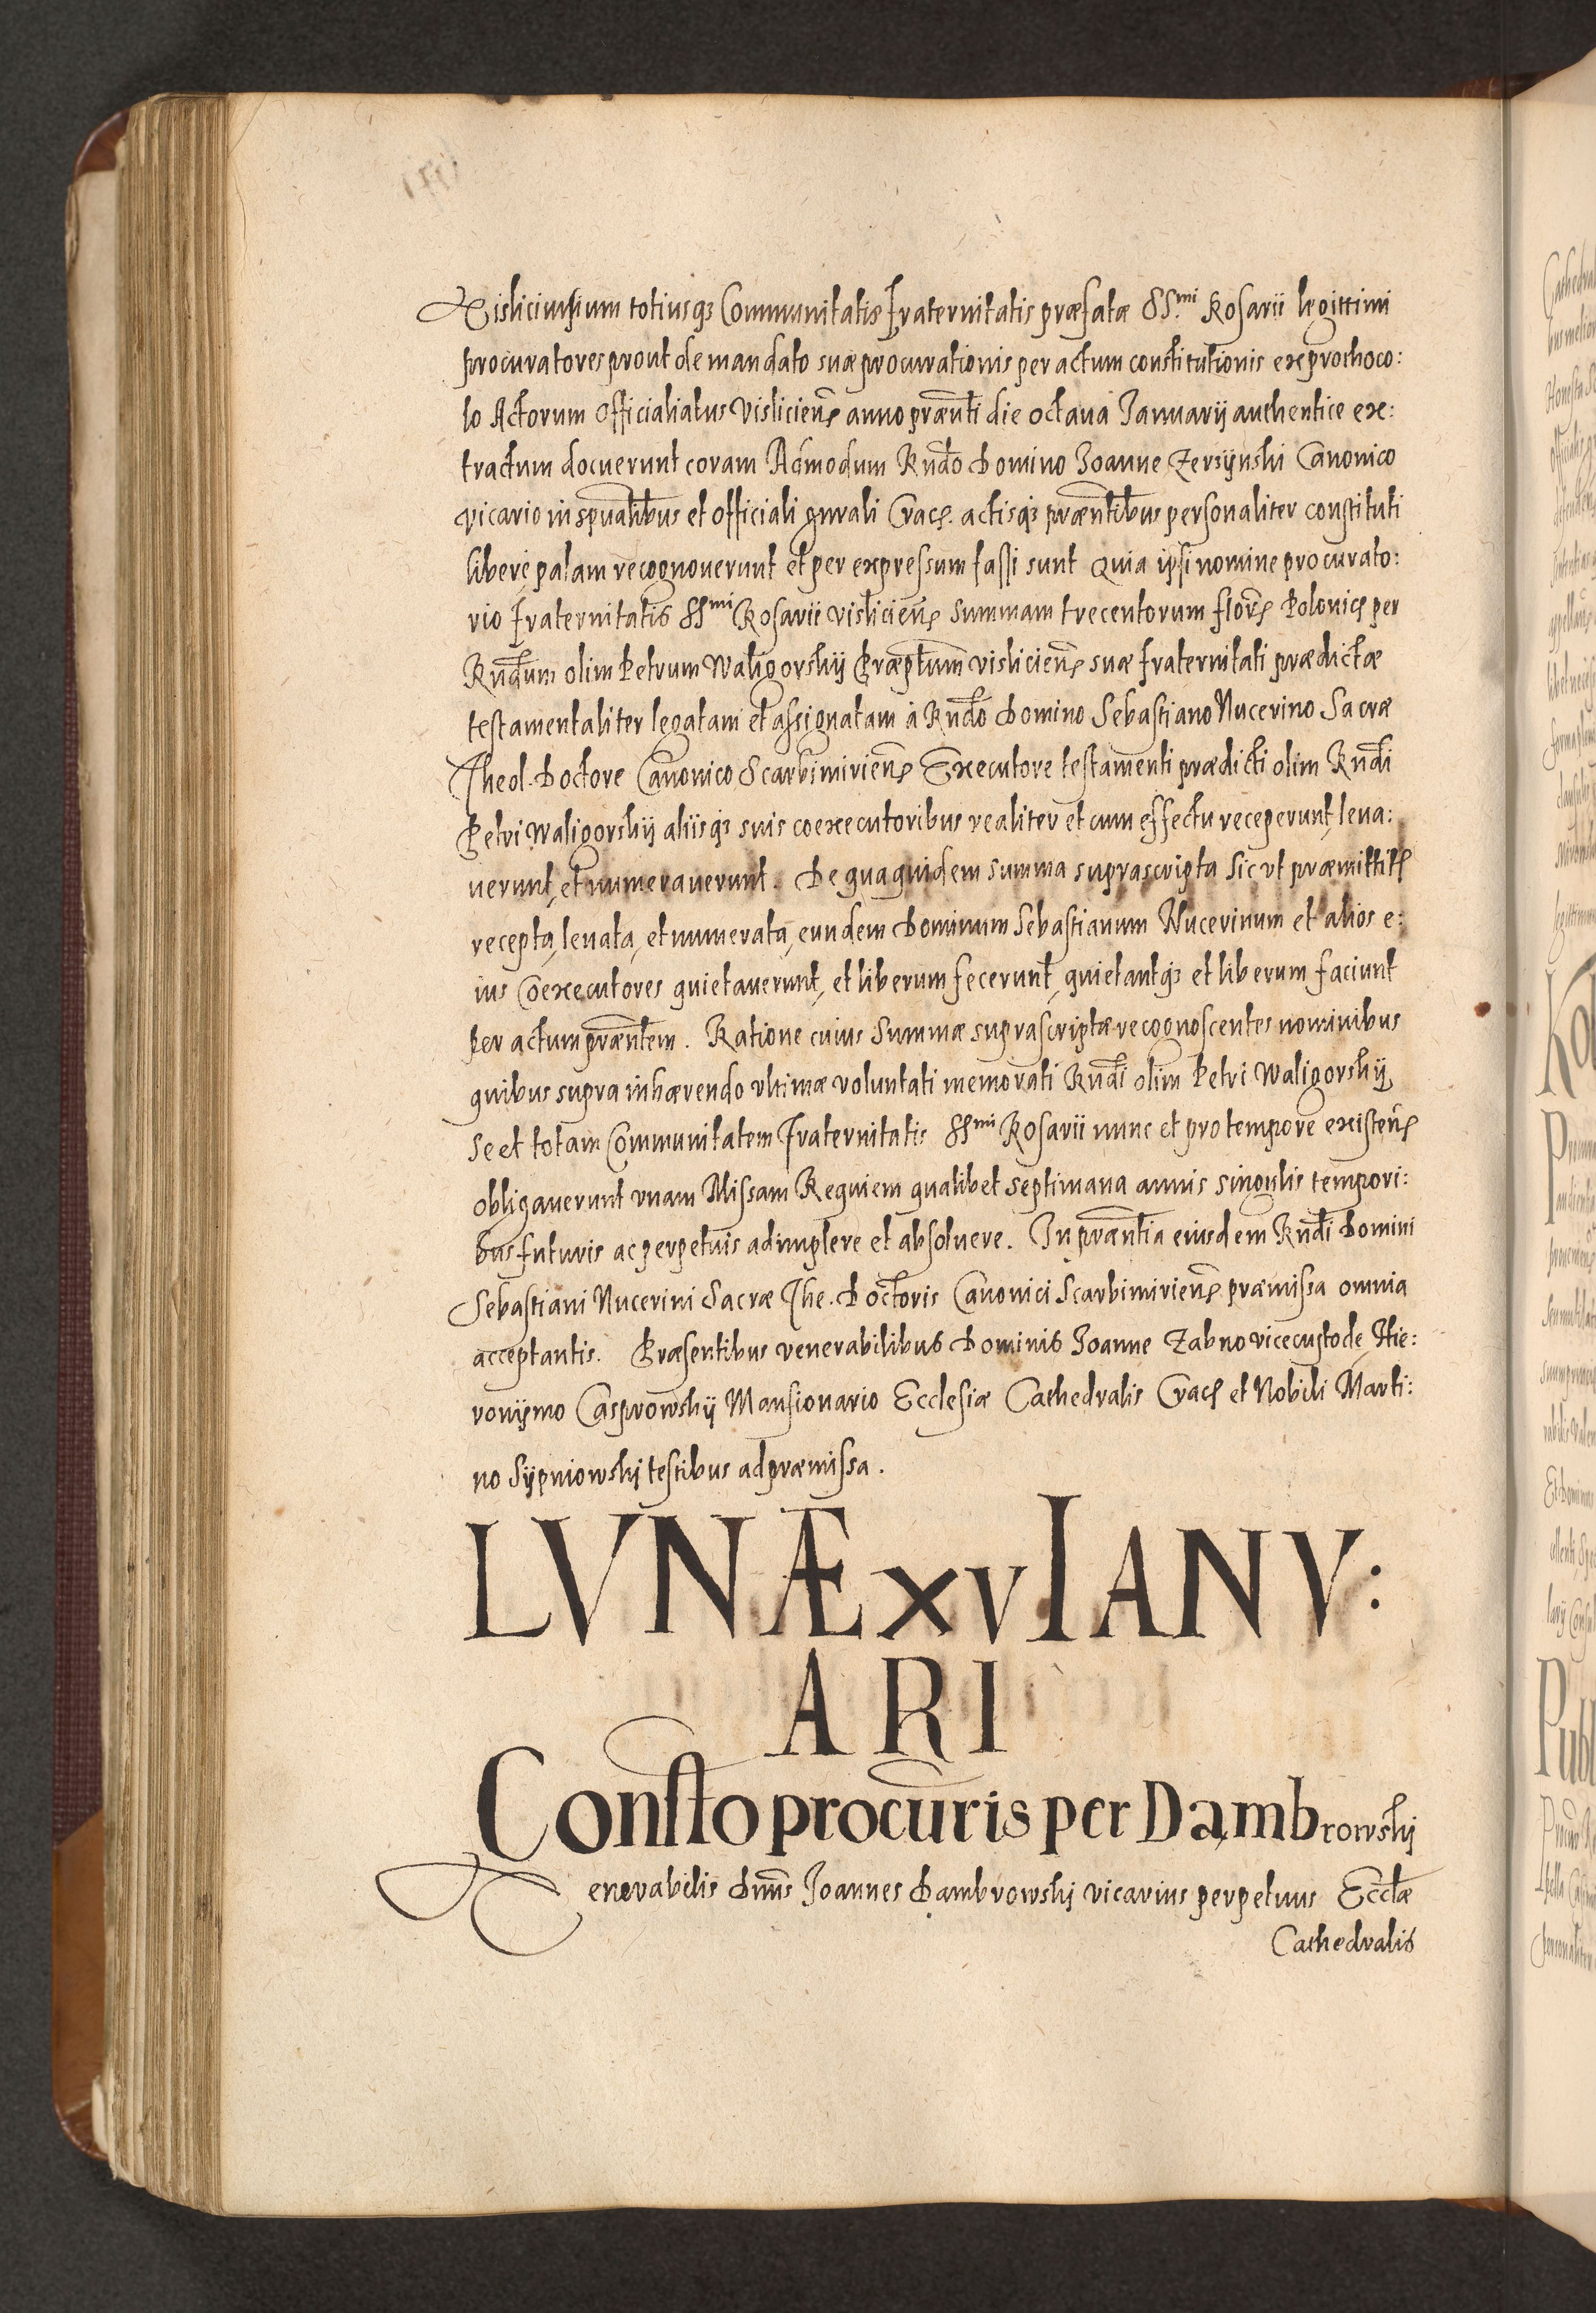 Visliciensium totiusq3 Communitatis Fraternitatis præfatæ SS.mi Rosarii legittimi
procuratores prout de mandato suæ procurationis per actum constitutionis ex prothoco:
lo Actorum Officialiatus Vislicien̄ anno præn̄ti die octaua Januarij authentice ex:
tractum docuerunt coram Admodum Rn̄do Domino Joanne Zerzijnski Canonico
vicario in sp̄ualibus et officiali gn̄rali Crac. actisq3 præn̄tibus personaliter constituti
libere palam recognouerunt et per expressum fassi sunt Quia ipsi nomine procurato:
rio Fraternitatis SSmi Rosarii vislicien̄ summam trecentorum flor̄ Polonic per
Rn̄dum olim Petrum Waligorskij Præp̄tum vislicien̄ suæ fraternitati prædictæ
testamentaliter legatam et assignatam à Rn̄do Domino Sebastiano Nucerino Sacræ
Theol. Doctore Canonico Scarbimirien̄ Executore testamenti prædicti olim Rn̄di
Petri Waligorskij aliisq3 suis coexecutoribus realiter et cum effectu receperunt, leua:
uerunt, et numerauerunt. De qua quidem summa suprascripta sic vt præmittitr
recepta, leuata, et numerata, eundem Dominum Sebastianum Nucerinum et alios e:
ius Coexecutores quietauerunt, et liberum fecerunt, quietantq3 et liberum faciunt
per actum præn̄tem. Ratione cuius Summæ suprascriptæ recognoscentes nominibus
quibus supra inhærendo vltimæ voluntati memorati Rn̄di olim Petri Waligorskij,
se et totam Communitatem Fraternitatis SSmi Rosarii nunc et pro tempore existen̄
obligauerunt vnam Missam Requiem qualibet septimana annis singulis tempori:
bus futuris ac perpetuis adimplere et absoluere. In præn̄tia eiusdem Rn̄di Domini
Sebastiani Nucerini Sacræ The. Doctoris Canonici Scarbimirien̄ præmissa omnia
acceptantis. Præsentibus venerabilibus Dominis Joanne Zabno vicecustode, Hie:
ronijmo Casprowskij Mansionario Ecclesiæ Cathedralis Crac et Nobili Marti:
no Sijpniowskj testibus ad præmissa.
LVNÆ XV IANV:
ARI
Constto procuris per Dambrowskj
enerabilis Dn̄us Joannes Dambrowskj vicarius perpetuus Eccl̄æ
Cathedralis